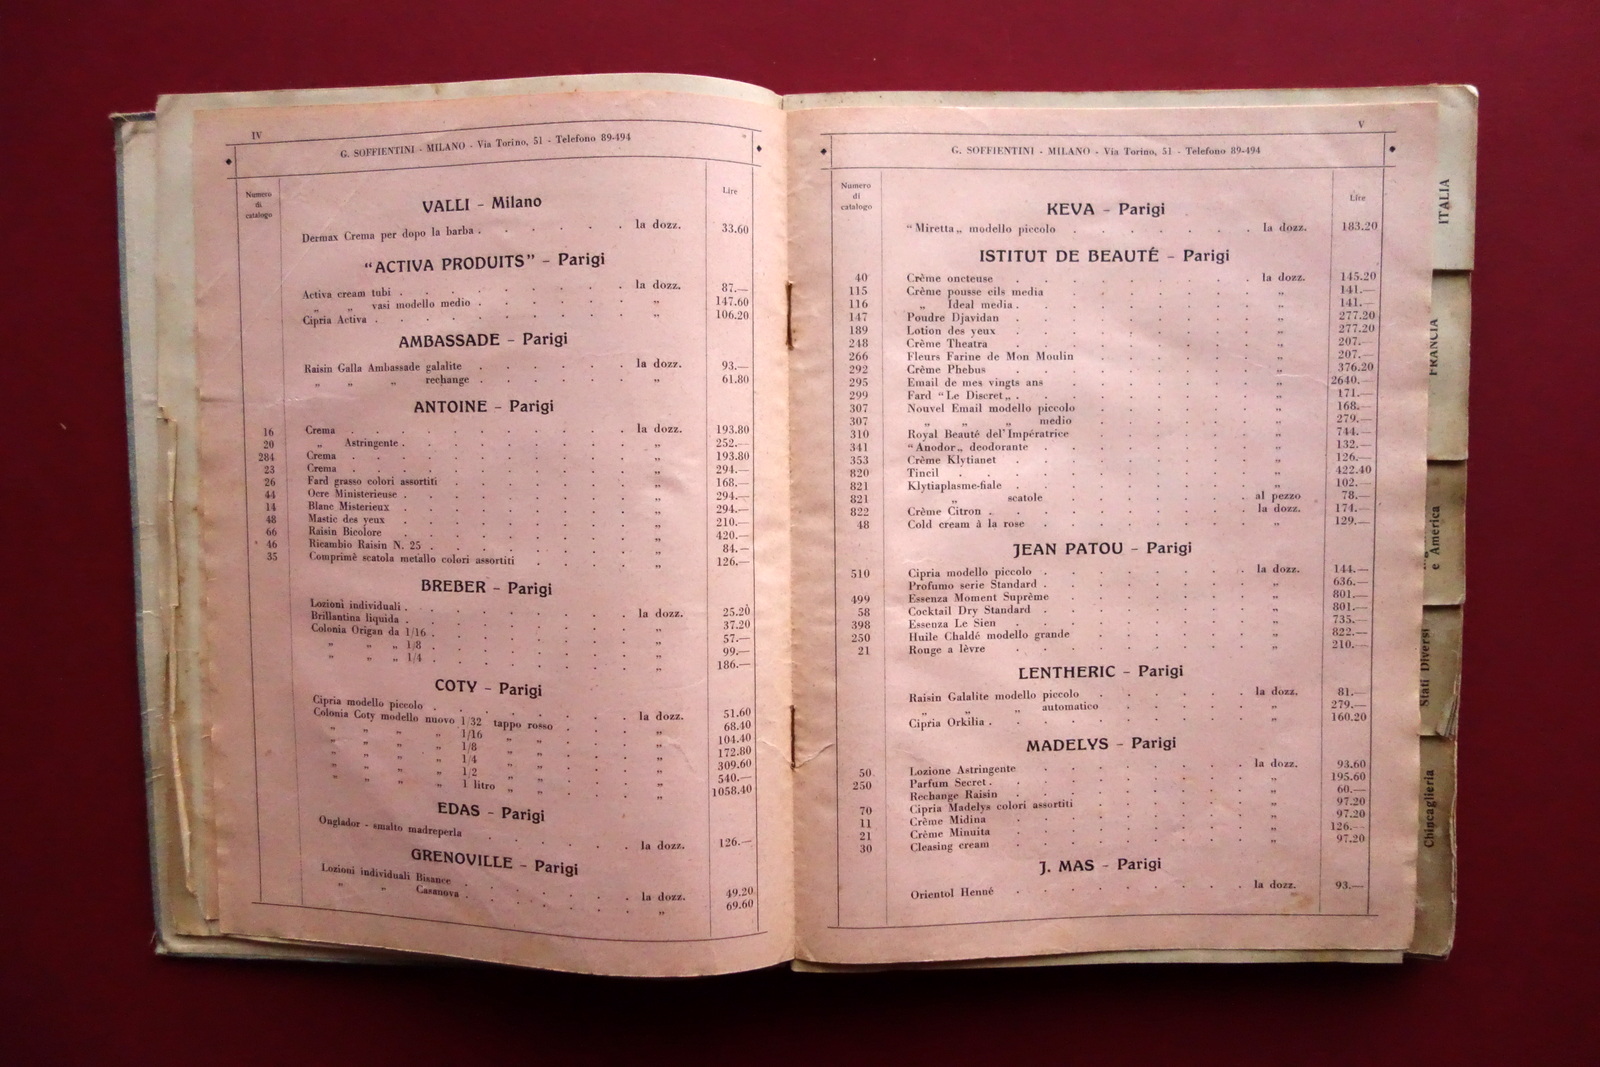 IV
G. SOFFIENTINI - MILANO - Via Torino, 51 - Telefono 89-494
Numero di catalogo
Lire
VALLI - Milano
Dermax Crema per dopo la barba . . . . . . la dozz. 33.60
"ACTIVA PRODUITS" - Parigi
Activa cream tubi . . . . . . la dozz. 87.—
„ „ vasi modello medio . . . . . . „ 147.60
Cipria Activa . . . . . . „ 106.20
AMBASSADE - Parigi
Raisin Galla Ambassade galalite . . . . . . la dozz. 93.—
„ „ „ rechange . . . . . . „ 61.80
ANTOINE - Parigi
16 Crema . . . . . . la dozz. 193.80
20 „ Astringente . . . . . . „ 252.—
284 Crema . . . . . . „ 193.80
23 Crema . . . . . . „ 294.—
26 Fard grasso colori assortiti . . . . . . „ 168.—
44 Ocre Ministerieuse . . . . . . „ 294.—
14 Blanc Misterieux . . . . . . „ 294.—
48 Mastic des yeux . . . . . . „ 210.—
66 Raisin Bicolore . . . . . . „ 420.—
46 Ricambio Raisin N. 25 . . . . . . „ 84.—
35 Comprimè scatola metallo colori assortiti . . . . „ 126.—
BREBER - Parigi
Lozioni individuali . . . . . . la dozz. 25.20
Brillantina liquida . . . . . . „ 37.20
Colonia Origan da 1/16 . . . . . . „ 57.—
„ „ „ 1/8 . . . . . . „ 99.—
„ „ „ 1/4 . . . . . . „ 186.—
COTY - Parigi
Cipria modello piccolo . . . . . . la dozz. 51.60
Colonia Coty modello nuovo 1/32 tappo rosso . . . „ 68.40
„ „ „ „ 1/16 „ „ . . . „ 104.40
„ „ „ „ 1/8 „ „ . . . „ 172.80
„ „ „ „ 1/4 „ „ . . . „ 309.60
„ „ „ „ 1/2 „ „ . . . „ 540.—
„ „ „ „ 1 litro „ „ . . . „ 1058.40
EDAS - Parigi
Onglador - smalto madreperla . . . . la dozz. 126.—
GRENOVILLE - Parigi
Lozioni individuali Bisance . . . . . . la dozz. 49.20
„ „ Casanova . . . . . . „ 69.60
V
G. SOFFIENTINI - MILANO - Via Torino, 51 - Telefono 89-494
Numero di catalogo
Lire
KEVA - Parigi
"Miretta„ modello piccolo . . . . . . la dozz. 183.20
ISTITUT DE BEAUTÉ - Parigi
40 Crême oncteuse . . . . . . la dozz. 145.20
115 Crême pousse cils media . . . . . . „ 141.—
116 „ Ideal media . . . . . . „ 141.—
147 Poudre Djavidan . . . . . . „ 277.20
189 Lotion des yeux . . . . . . „ 277.20
248 Crême Theatra . . . . . . „ 207.—
266 Fleurs Farine de Mon Moulin . . . . . . „ 207.—
292 Crême Phebus . . . . . . „ 376.20
295 Email de mes vingts ans . . . . . . „ 2640.—
299 Fard "Le Discret„ . . . . . . „ 171.—
307 Nouvel Email modello piccolo . . . . . . „ 168.—
307 „ „ „ medio . . . . . . „ 279.—
310 Royal Beauté del'Impératrice . . . . . . „ 744.—
341 "Anodor„ deodorante . . . . . . „ 132.—
353 Crême Klytianet . . . . . . „ 126.—
820 Tincil . . . . . . „ 422.40
821 Klytiaplasme-fiale . . . . . . „ 102.—
821 „ scatole . . . . . . al pezzo 78.—
822 Crême Citron . . . . . . la dozz. 174.—
48 Cold cream à la rose . . . . . . „ 129.—
JEAN PATOU - Parigi
510 Cipria modello piccolo . . . . . . la dozz. 144.—
Profumo serie Standard . . . . . . „ 636.—
499 Essenza Moment Suprême . . . . . . „ 801.—
58 Cocktail Dry Standard . . . . . . „ 801.—
398 Essenza Le Sien . . . . . . „ 735.—
250 Huile Chaldé modello grande . . . . . . „ 822.—
21 Rouge a lèvre . . . . . . „ 210.—
LENTHERIC - Parigi
Raisin Galalite modello piccolo . . . . . . la dozz. 81.—
„ „ „ automatico . . . . . . „ 279.—
Cipria Orkilia . . . . . . „ 160.20
MADELYS - Parigi
50 Lozione Astringente . . . . . . la dozz. 93.60
250 Parfum Secret . . . . . . „ 195.60
Rechange Raisin . . . . . . „ 60.—
70 Cipria Madelys colori assortiti . . . . . . „ 97.20
11 Crême Midina . . . . . . „ 97.20
21 Crême Minuita . . . . . . „ 126.—
30 Cleasing cream . . . . . . „ 97.20
J. MAS - Parigi
Orientol Henné . . . . . . la dozz. 93.—
ITALIA
FRANCIA
e America
Stati Diversi
Chincaglieria